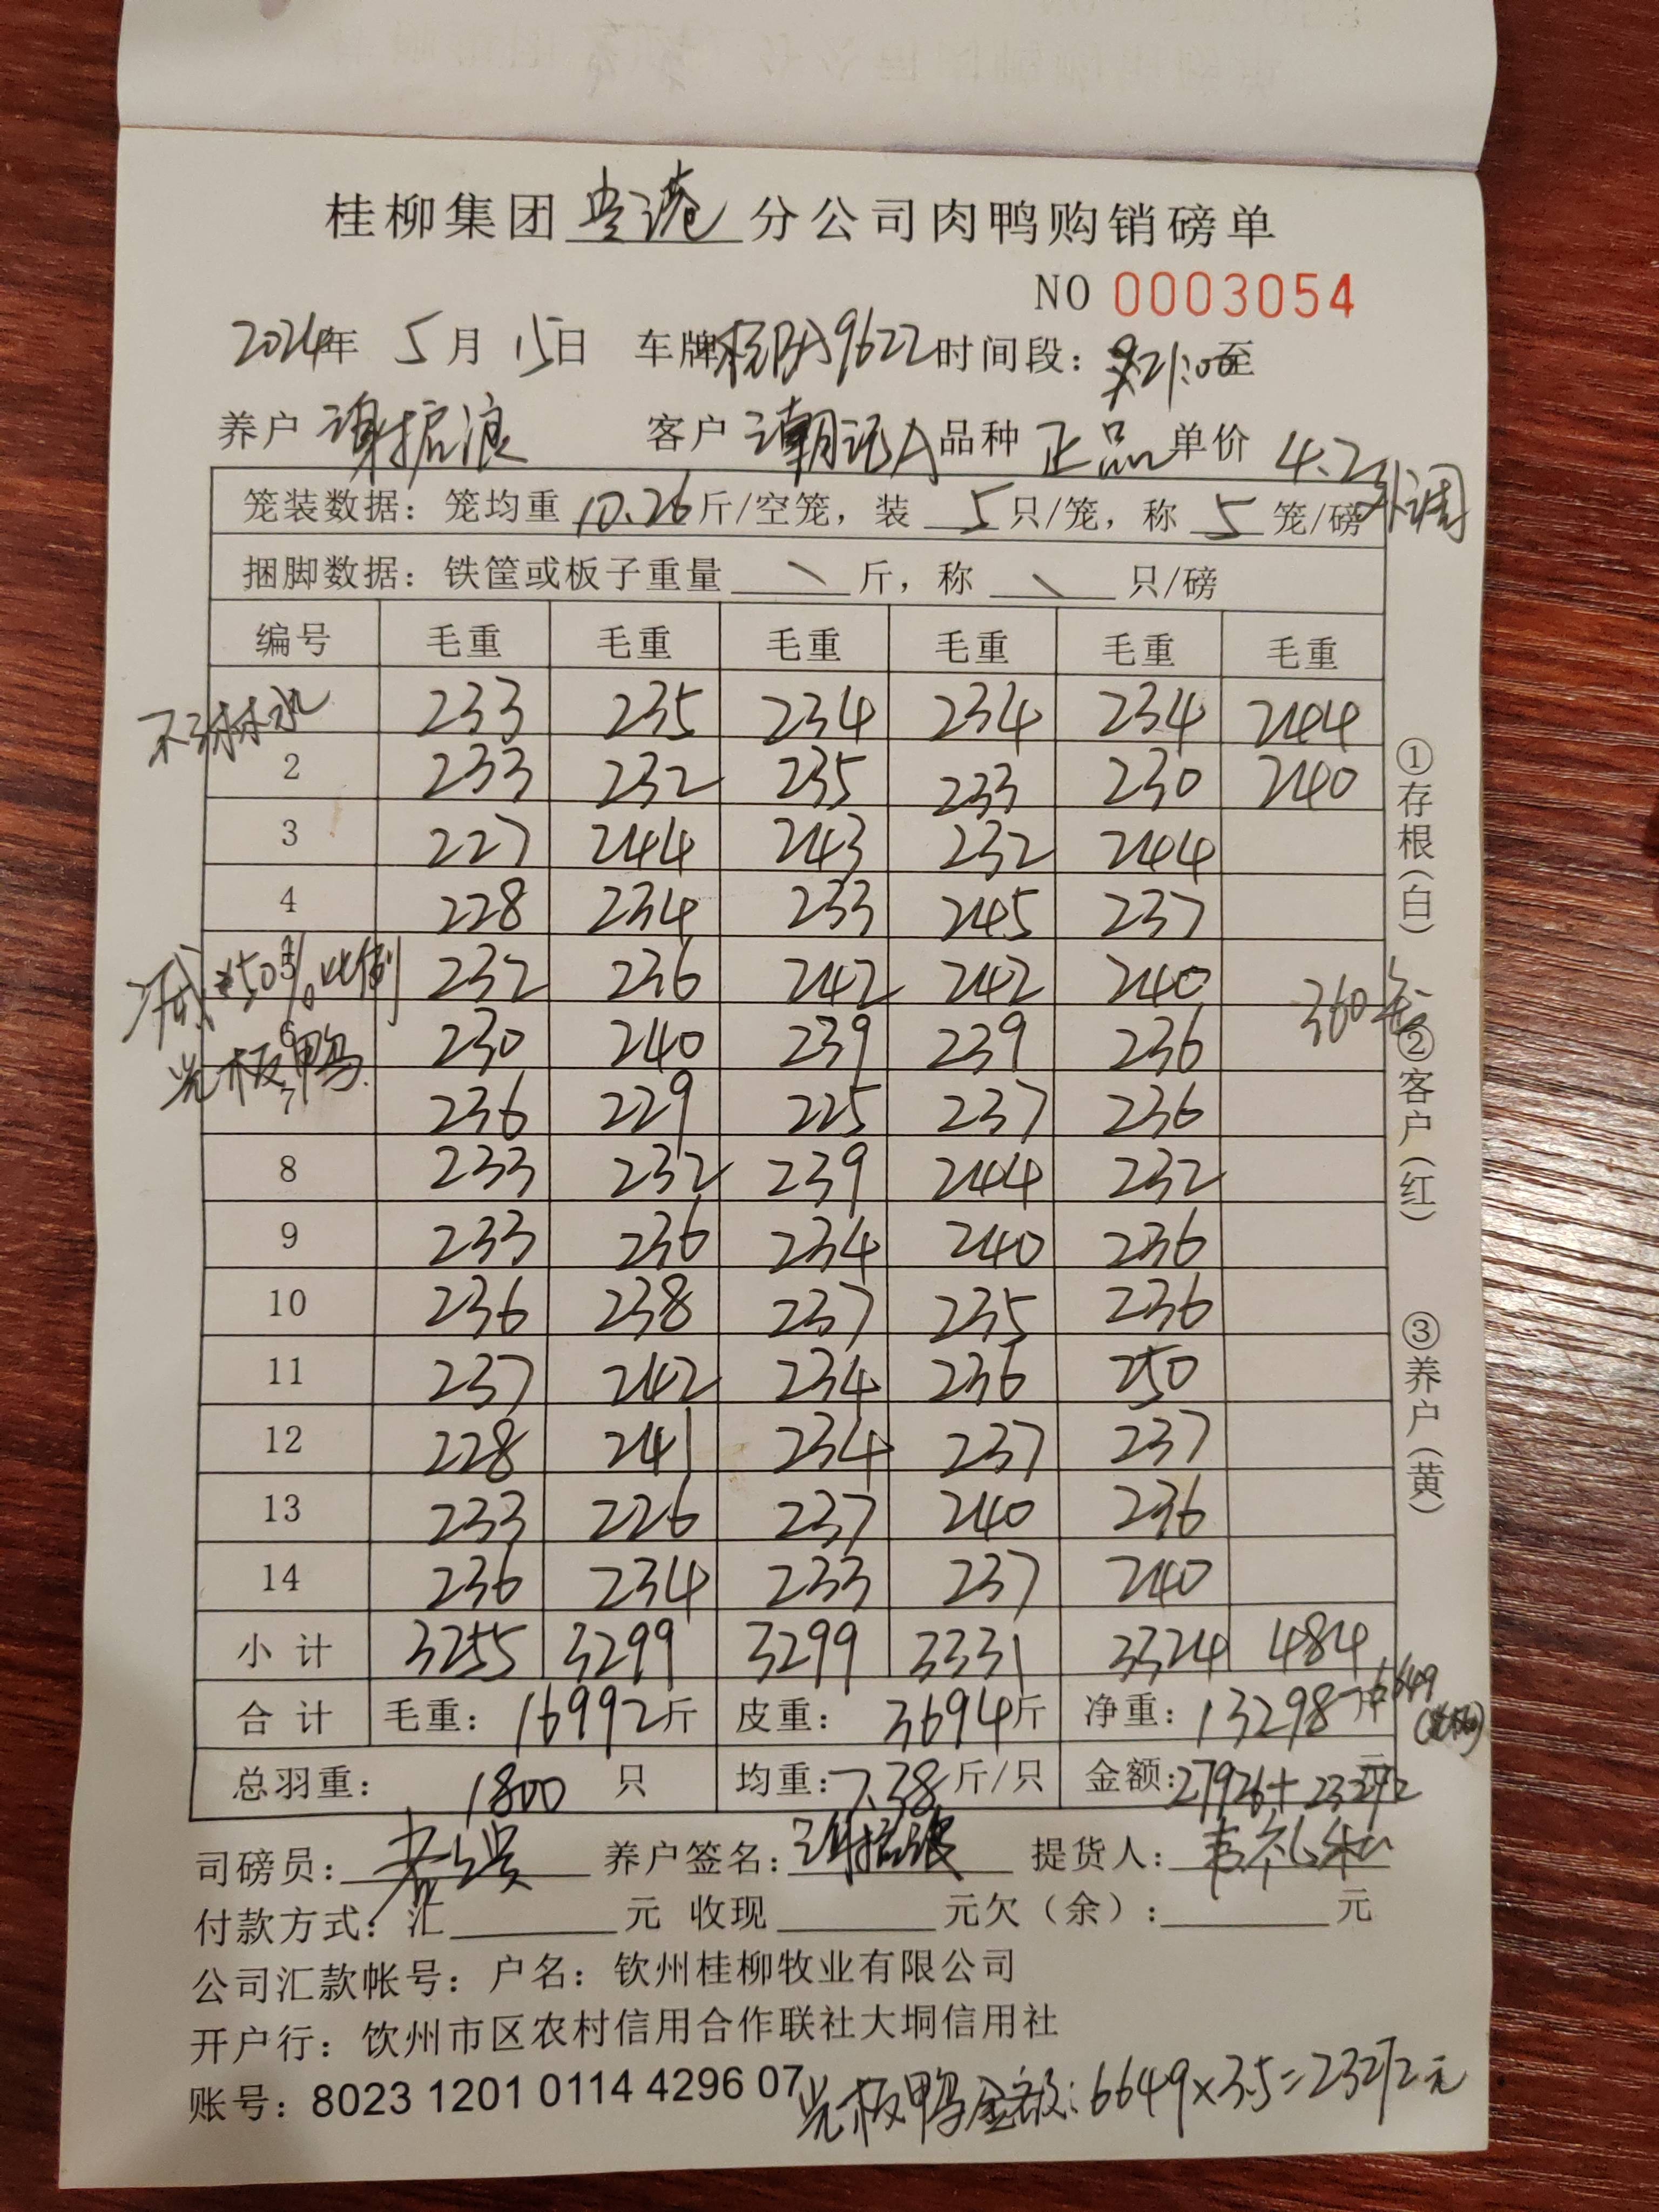 桂柳集团贵港分公司肉鸭购销磅单
NO 0003054
2024年 5月 15日 车牌 9622 时间段: 21:00至
养户 谢振浪 客户 潮记A 品种 正品 单价 4.2
外调
笼装数据：笼均重 10.26 斤/空笼，装 5 只/笼，称 5 笼/磅
捆脚数据：铁筐或板子重量 \ 斤，称 \ 只/磅
编号 毛重 毛重 毛重 毛重 毛重 毛重
不淋水 233 235 234 234 234 244
2 233 232 235 233 230 240
3 227 244 243 232 244
4 228 234 233 245 237
5 232 236 242 242 240
50%比例
360
6 230 240 239 239 236
光板鸭
7 236 229 225 237 236
8 233 232 239 244 232
9 233 236 234 240 236
10 236 238 237 235 236
11 237 242 234 236 250
12 228 241 234 237 237
13 233 226 237 240 236
14 236 234 233 237 240
小计 3255 3299 3299 3331 3324 484
合计 毛重：16992斤 皮重：3694斤 净重：13298斤
6649
总羽重：1800 只 均重：7.38斤/只 金额：27926+23272元
司磅员： 养户签名：谢振浪 提货人：
付款方式：汇 元 收现 元欠（余）： 元
公司汇款帐号：户名：钦州桂柳牧业有限公司
开户行：钦州市区农村信用合作联社大垌信用社
账号：8023 1201 0114 4296 07
光板鸭金额：6649×3.5=23272元
①存根(白)
②客户(红)
③养户(黄)